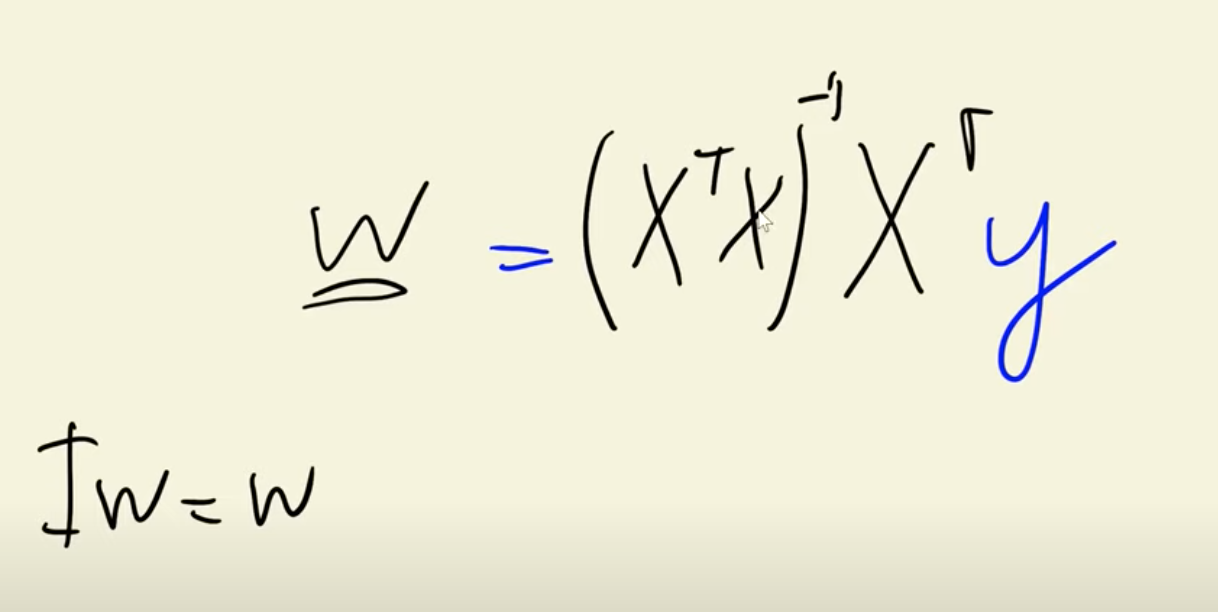 w = (XᵀX)⁻¹Xᵀy
Iw = w